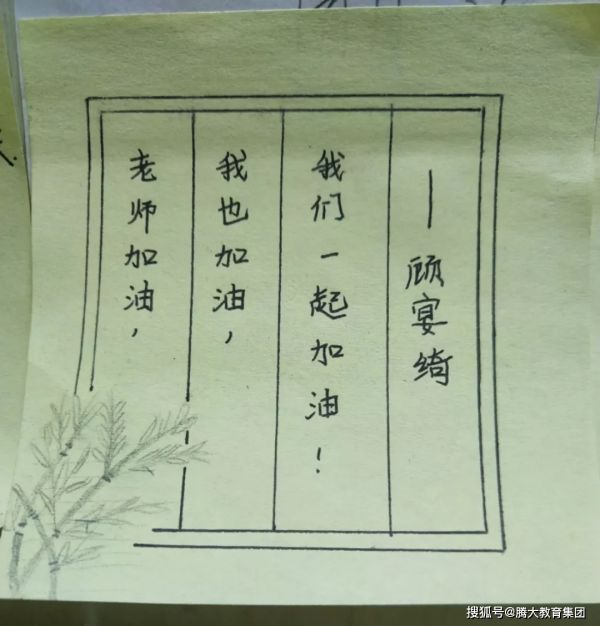 老师加油，
我也加油，
我们一起加油！
——顾宴绮
搜狐号@腾大教育集团